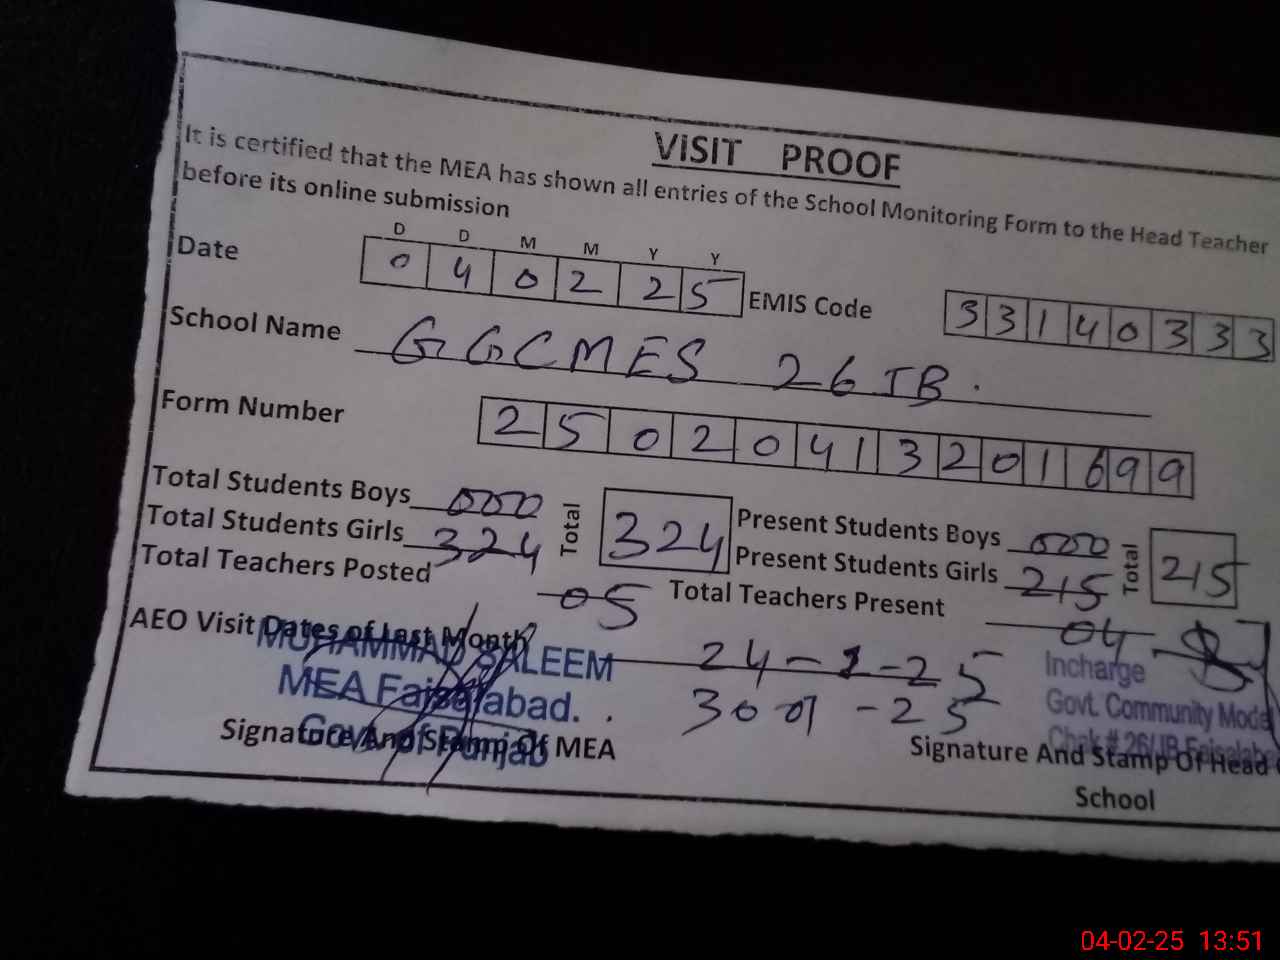 ViSIT PROOF
It is certified that the MEA has shown all entries of the School Monitoring Form to the Head Teacher
before its online submission
D D M M Y Y
Date 0 4 0 2 2 5 EMIS Code 3 3 1 4 0 3 3 3
School Name GGCMES 26 JB.
Form Number 2 5 0 2 0 4 1 3 2 0 1 6 9 9
Total Students Boys 000 Total 324 Present Students Boys 000 Total 215
Total Students Girls 324 Present Students Girls 215
Total Teachers Posted 05 Total Teachers Present 04
AEO Visit Dates of Last Month 24-1-25
30 01 -25
MUHAMMAD SALEEM
MEA Faisalabad.
Govt. of Punjab
Signature And Stamp Of MEA
Incharge
Govt. Community Model
Chak # 26/JB Faisalaba
Signature And Stamp Of Head
School
04-02-25 13:51